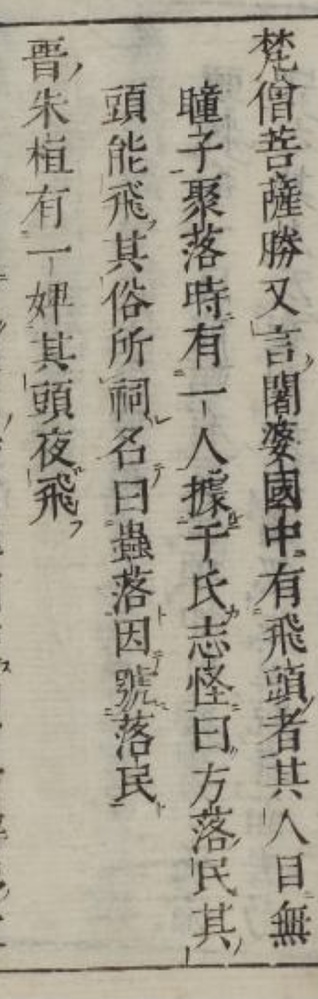 梵僧菩薩勝又言闍婆國中有飛頭者其人目無
瞳子聚落時有一人據于氏志怪曰方落民其
頭能飛其俗所祠名曰蟲落因號落民
晋朱植有一婢其頭夜飛